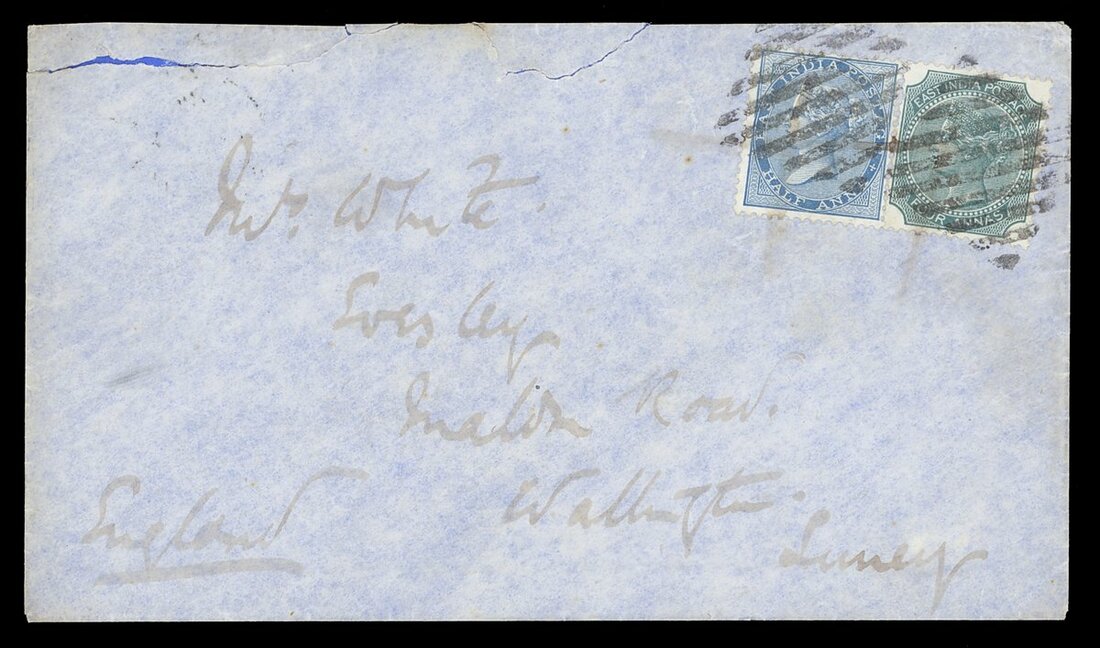 EAST INDIA POSTAGE
HALF ANNA
EAST INDIA POSTAGE
FOUR ANNAS
Mrs White.
Eversley
Maldon Road.
Wallington.
Surrey
England